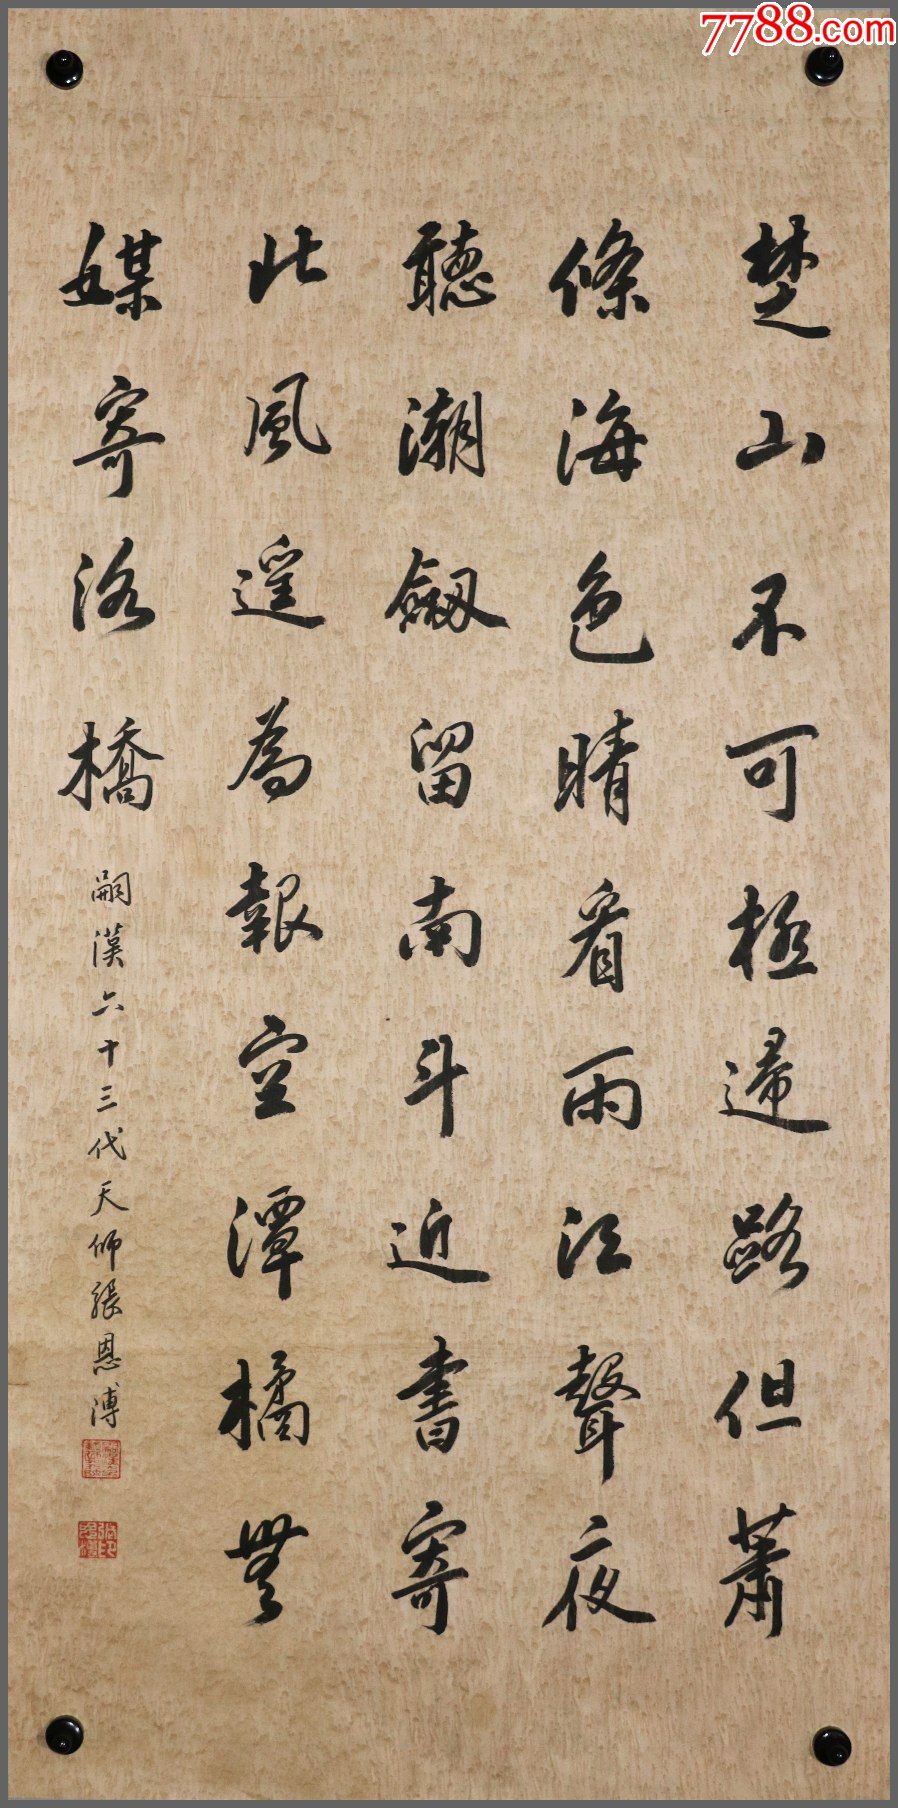 7788.com
楚山不可極歸路但蕭
條海色晴看雨江聲夜
聽潮劔留南斗近書寄
北風遥為報空潭橘無
媒寄洛橋
嗣漢六十三代天師張恩溥